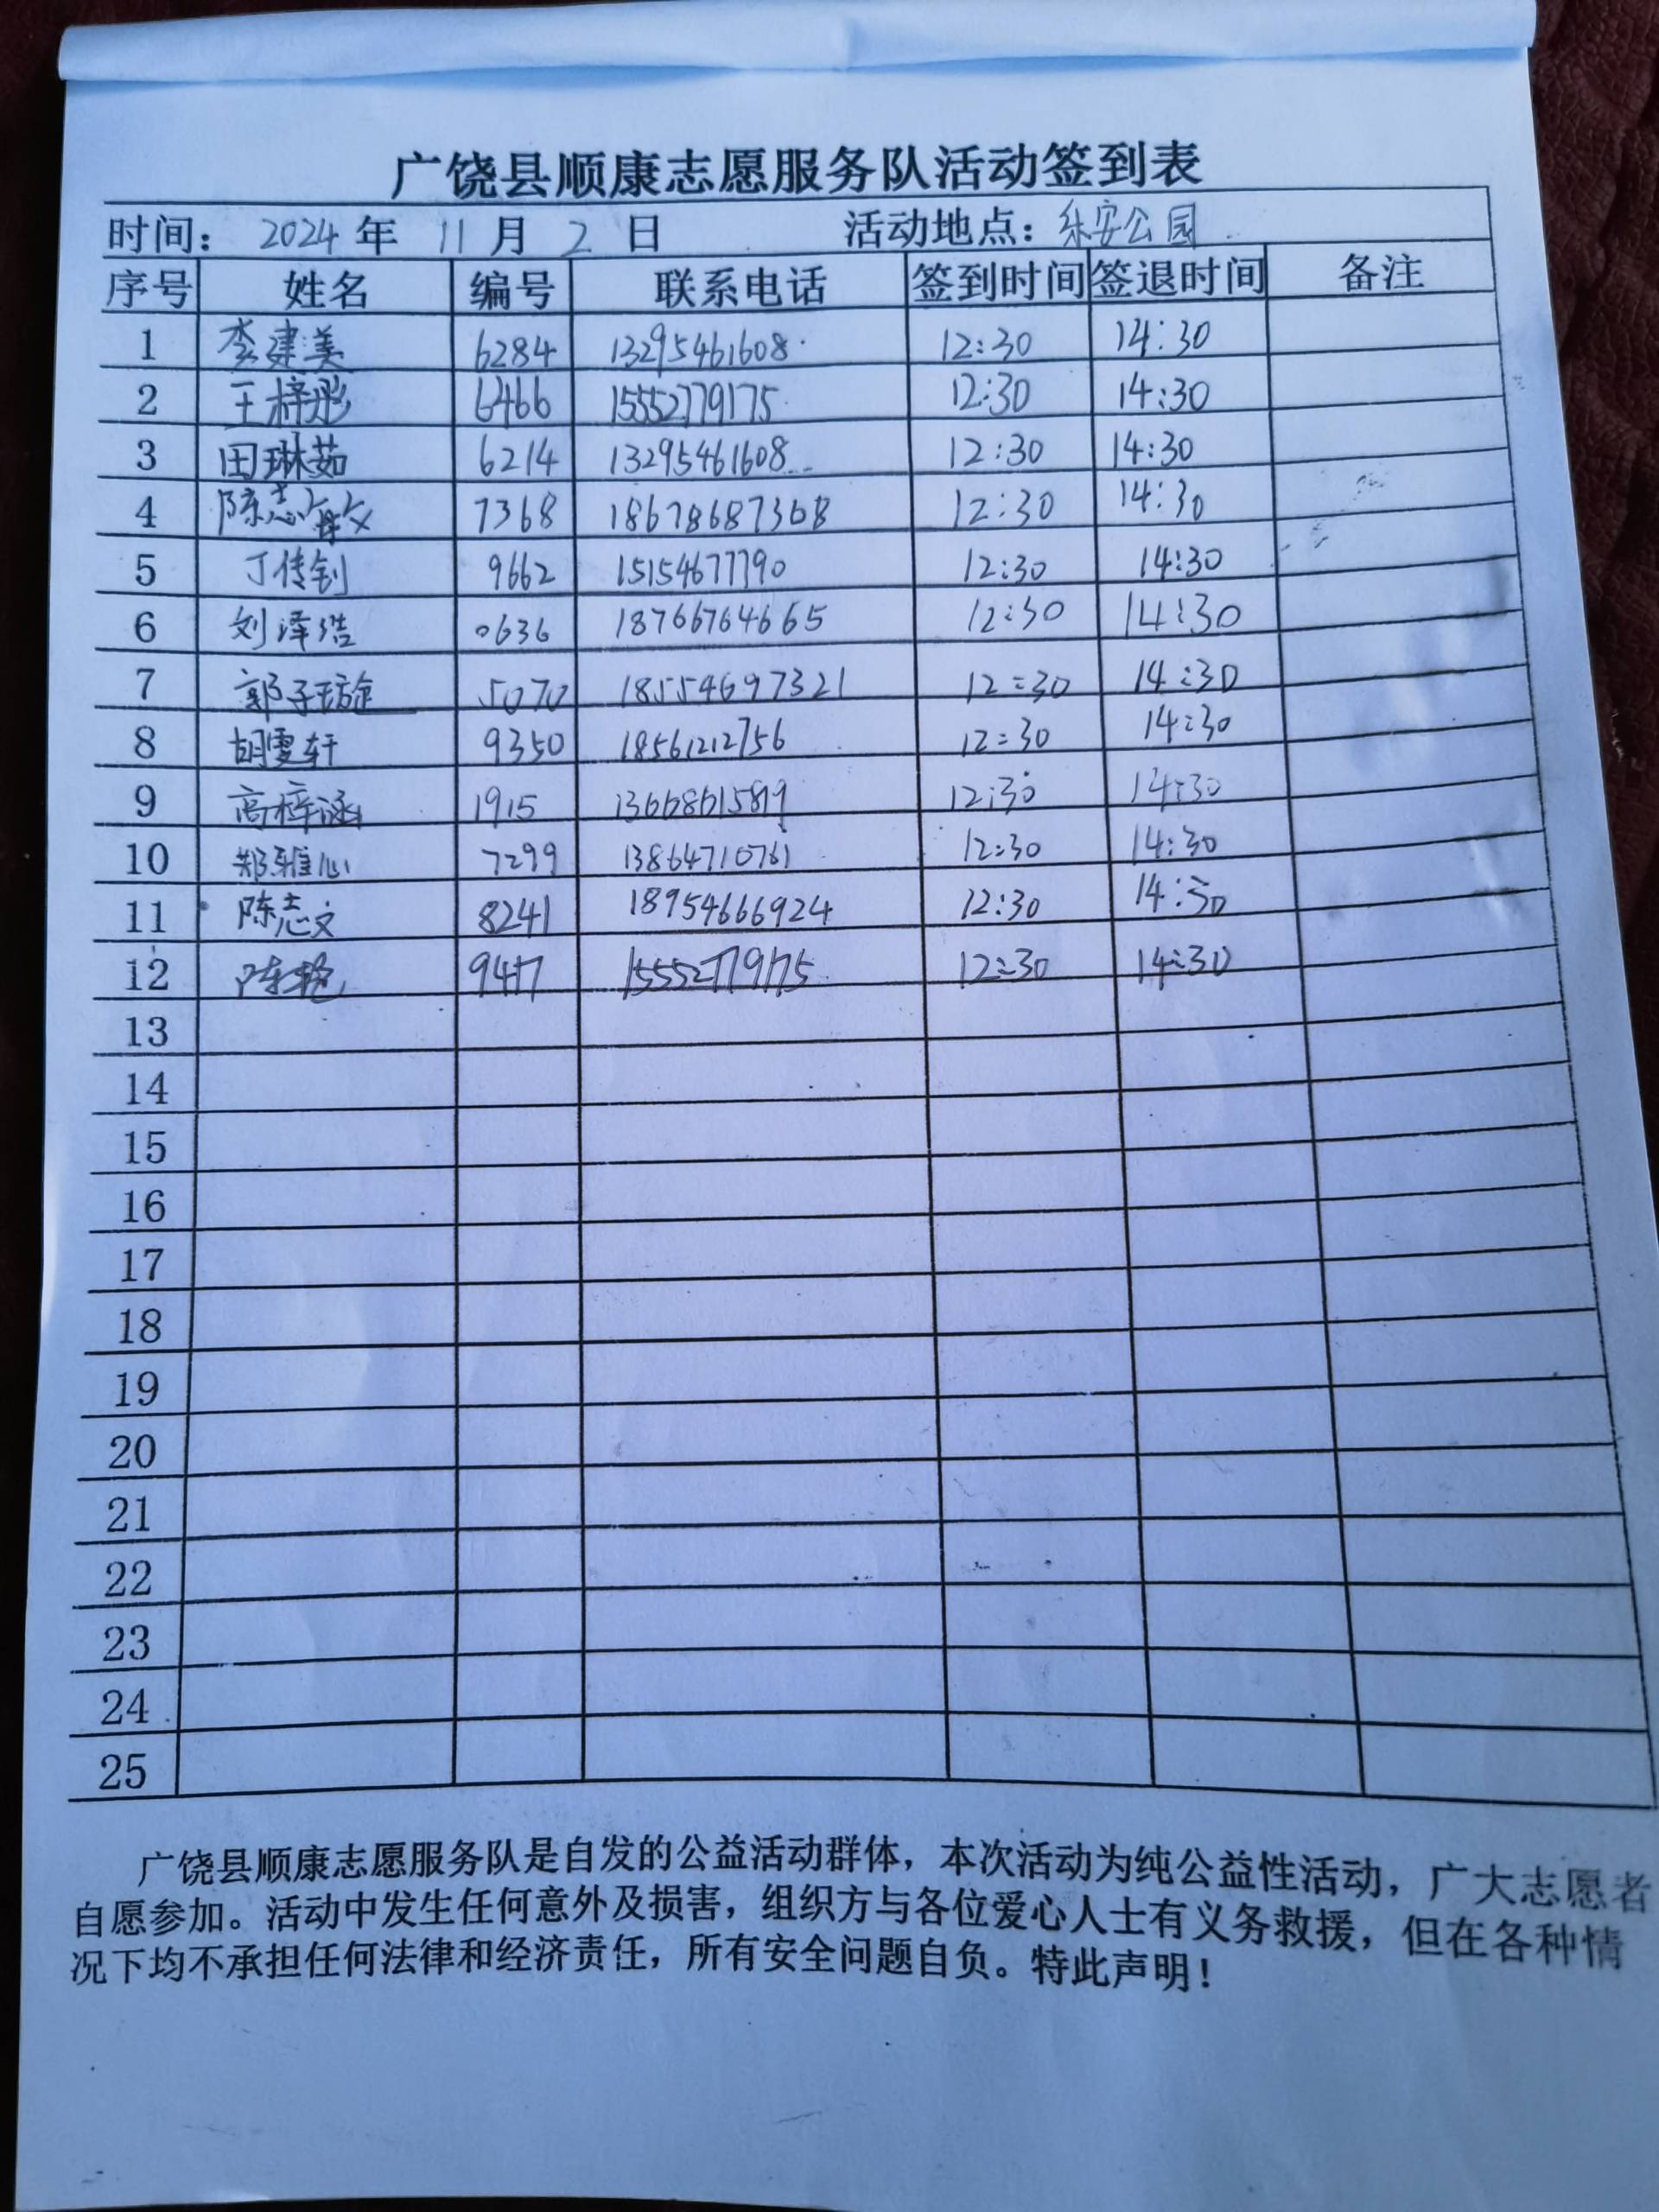 广饶县顺康志愿服务队活动签到表
时间： 2024 年 11 月 2 日 活动地点：乐安公园
序号 姓名 编号 联系电话 签到时间 签退时间 备注
1 李建美 6284 13295461608 12:30 14:30
2 王梓彤 6466 15552779175 12:30 14:30
3 田琳茹 6214 13295461608 12:30 14:30
4 陈志敏 7368 18678687368 12:30 14:30
5 丁传钊 9662 15154677790 12:30 14:30
6 刘泽浩 0636 18766764665 12:30 14:30
7 郭子璇 5070 18554697321 12:30 14:30
8 胡雯轩 9350 18561212756 12:30 14:30
9 高梓涵 1915 13668615819 12:30 14:30
10 郑雅心 7299 13864710761 12:30 14:30
11 陈志文 8241 18954666924 12:30 14:30
12 陈艳 9417 15552779175 12:30 14:30
13
14
15
16
17
18
19
20
21
22
23
24
25
广饶县顺康志愿服务队是自发的公益活动群体，本次活动为纯公益性活动，广大志愿者
自愿参加。活动中发生任何意外及损害，组织方与各位爱心人士有义务救援，但在各种情
况下均不承担任何法律和经济责任，所有安全问题自负。特此声明！